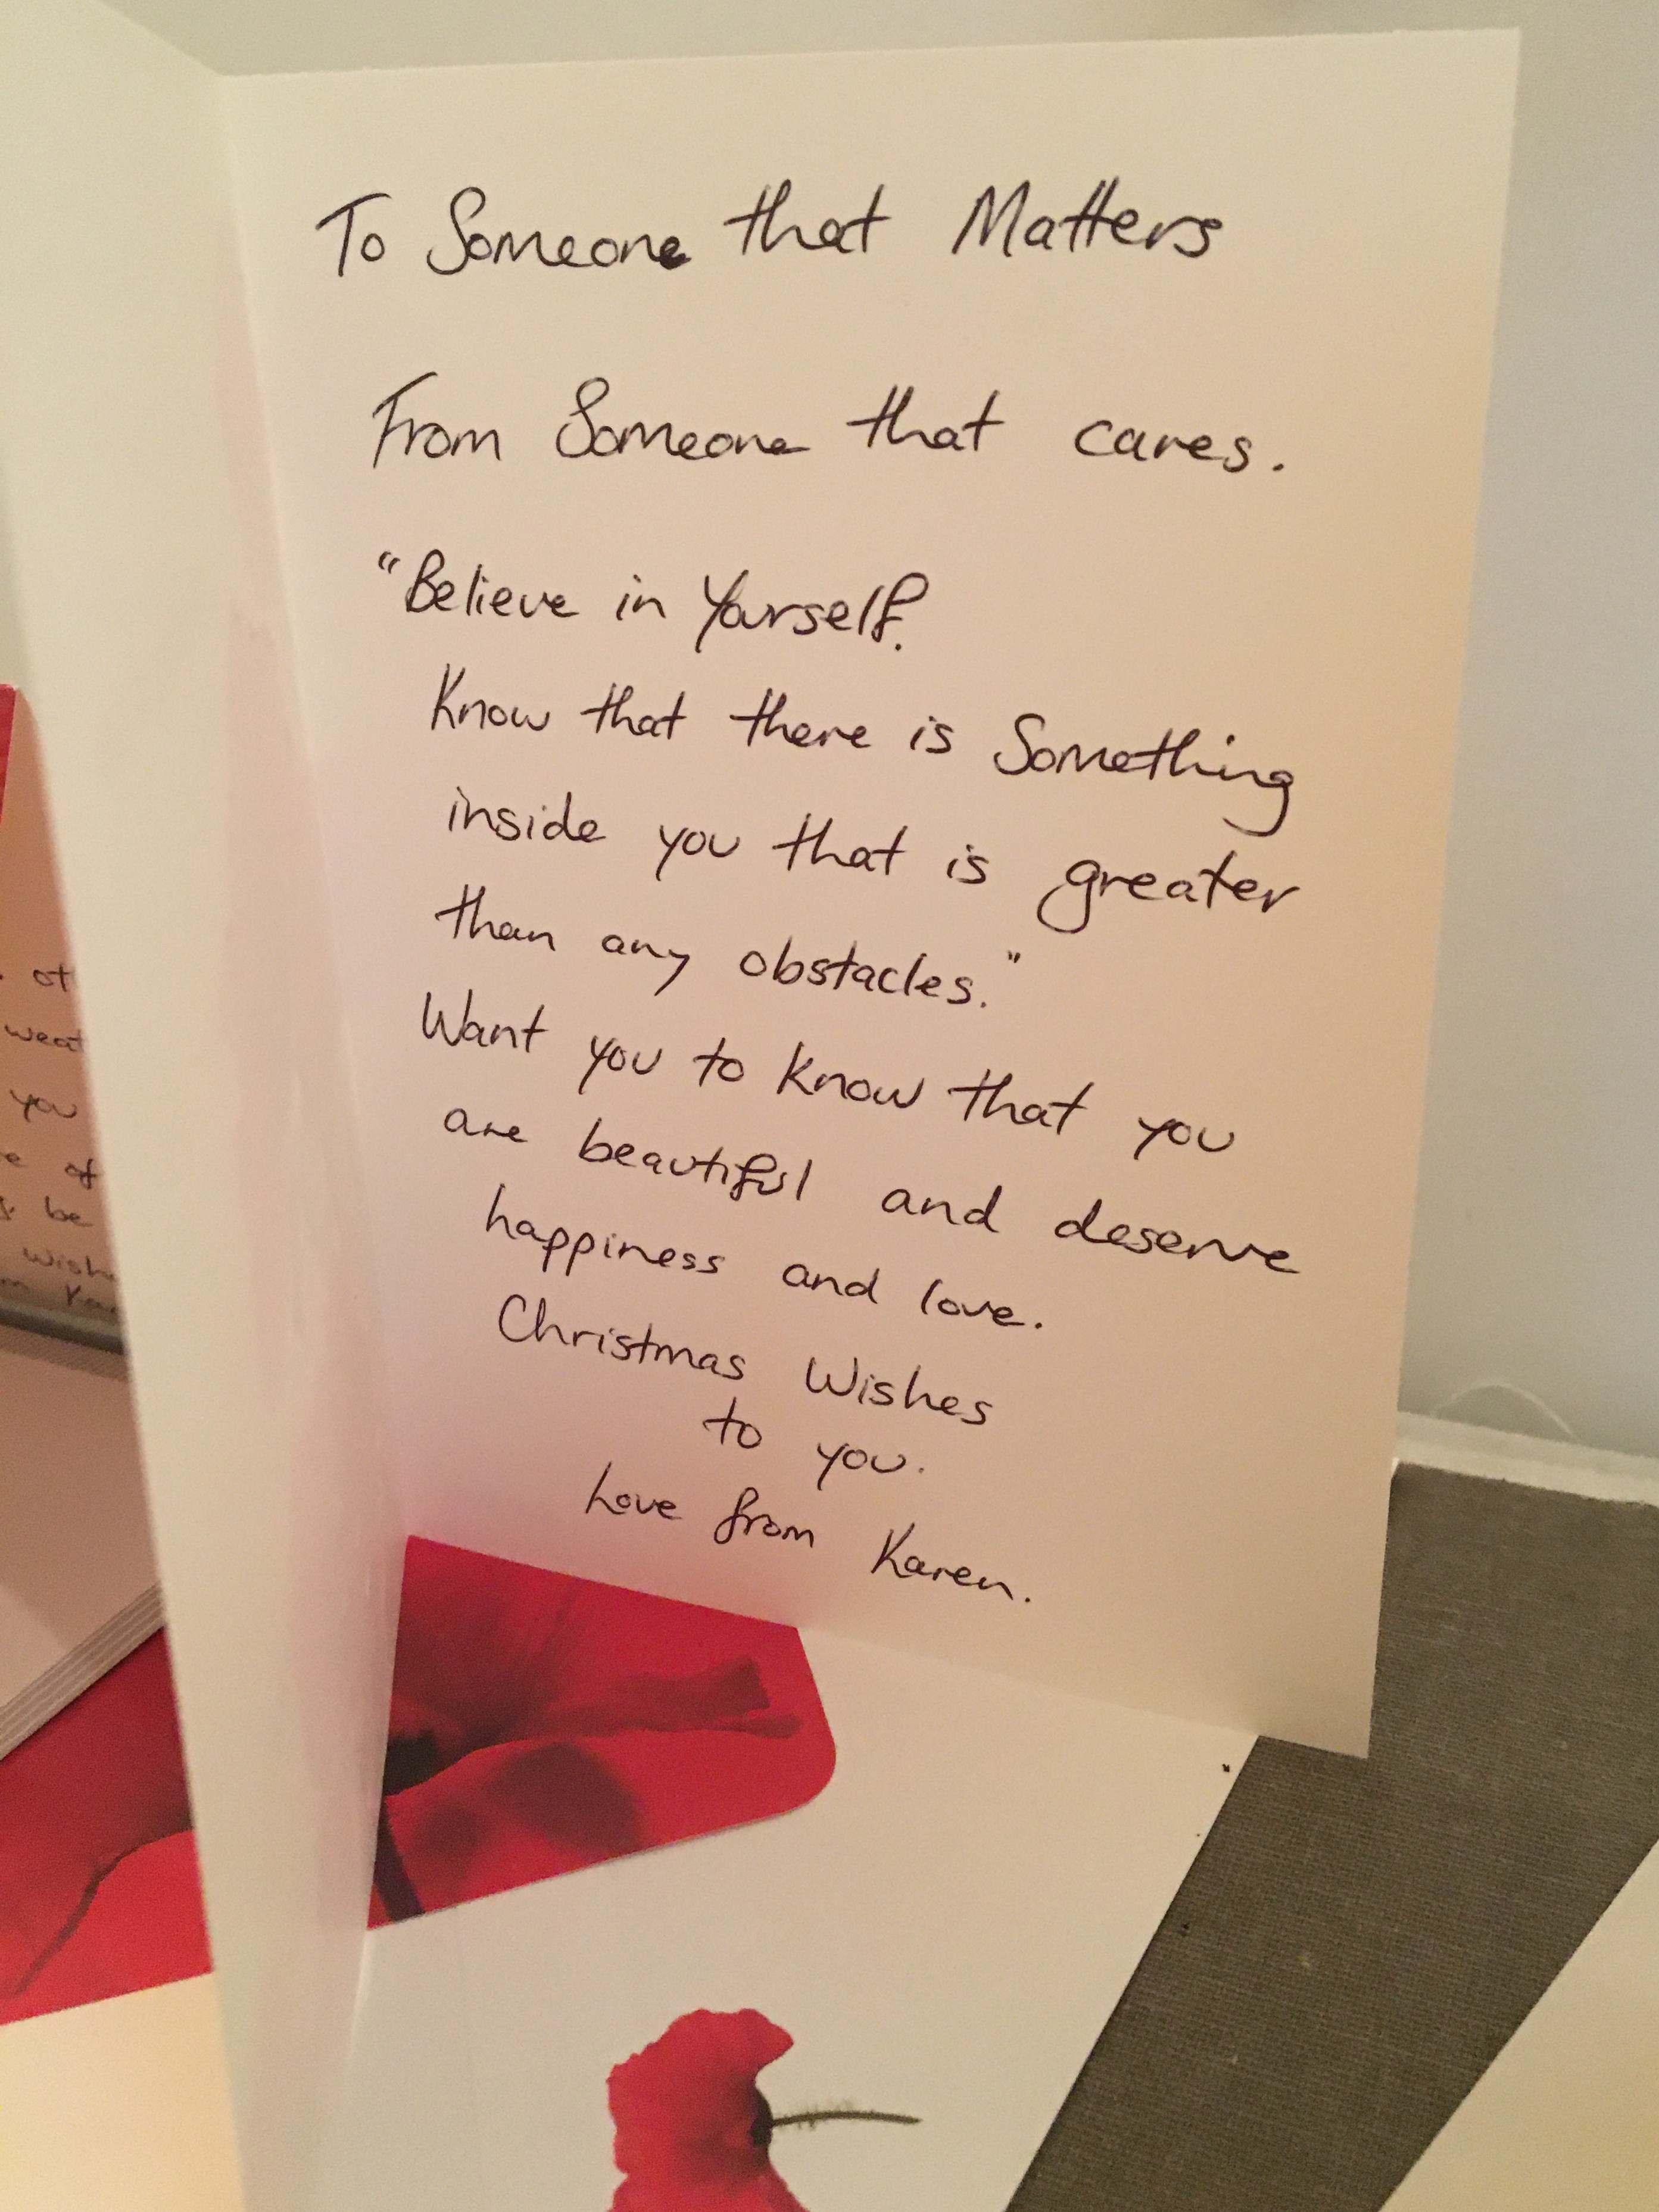 To Someone that Matters
From Someone that cares.
"Believe in Yourself.
Know that there is Something
inside you that is greater
than any obstacles."
Want you to know that you
are beautiful and deserve
happiness and love.
Christmas Wishes
to you.
Love from Karen.
you
of
be